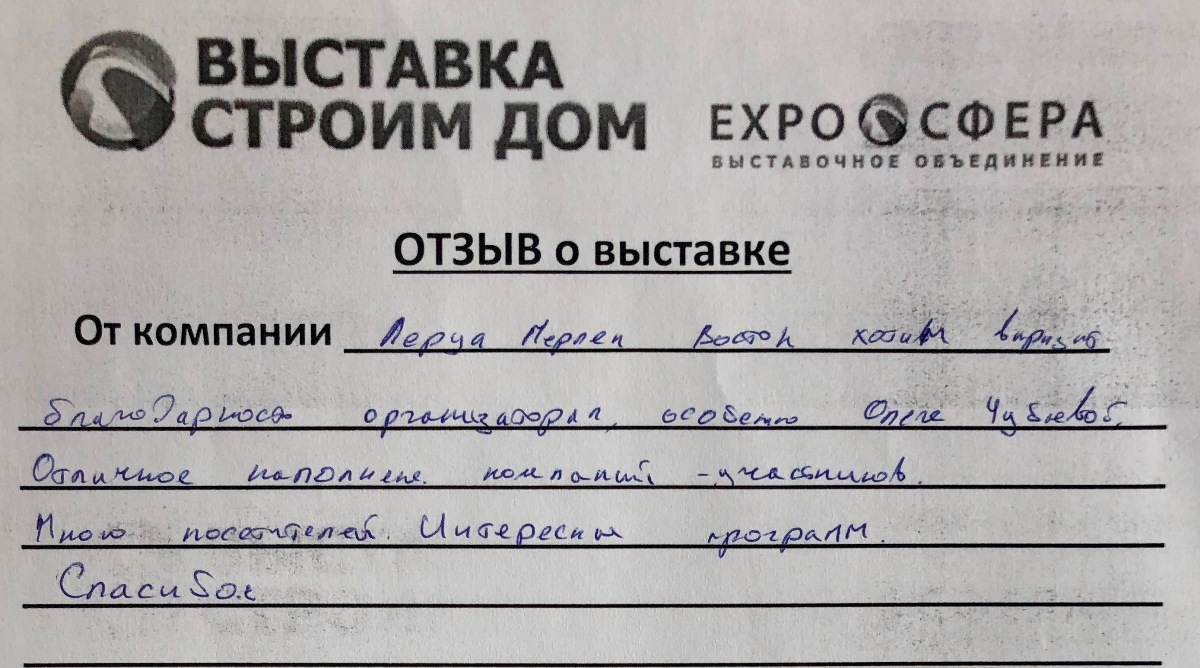 ВЫСТАВКА
СТРОИМ ДОМ
EXPO СФЕРА
ВЫСТАВОЧНОЕ ОБЪЕДИНЕНИЕ
ОТЗЫВ о выставке
От компании Леруа Мерлен Восток хотим
благодарность организаторам, особенно Олеге Чубневой.
Отличное наполнене компаний - участников.
Много посетителей. Интересны программ.
Спасибо!